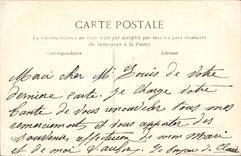 CARTE POSTALE
La Correspondance au recto n'est pas acceptée par tous les pays étrangers
(Se renseigner à la Poste)
Correspondance Adresse
Merci cher Mr Louis de votre
dernière carte. Je charge votre
Carte de vous renouveler tous mes
remerciements et vous apporter des
Souvenirs affectueux de mon Mari
et de moi
Le bonjour de